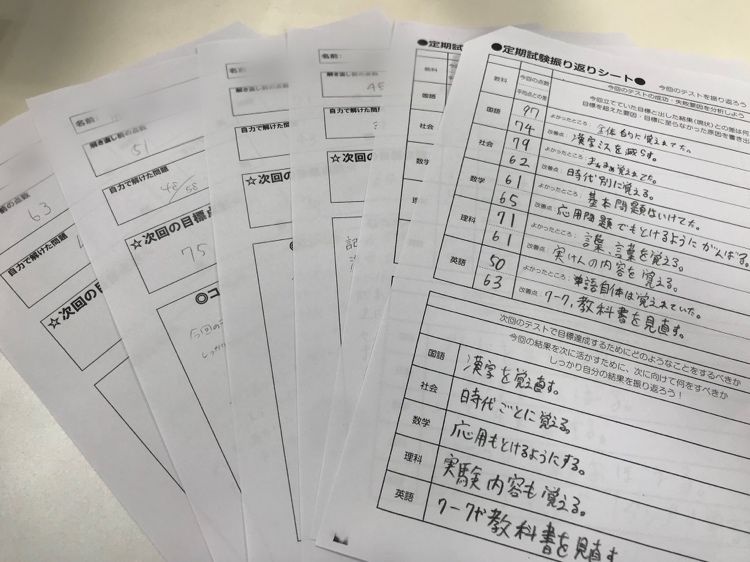 ●定期試験振り返りシート●
今回のテストを振り返ろう
教科
今回の点数
平均点との差
今回のテストの成功・失敗要因を分析しよう
今回立てていた目標と出した結果(現状)との差は何
目標を超えた要因・目標に至らなかった原因を書き出
国語
97
74
よかったところ：全体的に覚えれてた。
改善点：漢字ミスを減らす。
社会
79
62
よかったところ：まぁまぁ覚えれてた。
改善点：時代別に覚える。
数学
61
65
よかったところ：基本問題はいけてた。
改善点：応用問題でもとけるようにがんばる。
理科
71
61
よかったところ：言葉、言葉を覚える。
改善点：実けんの内容を覚える。
英語
50
63
よかったところ：単語自体は覚えれていた。
改善点：ワーク、教科書を見直す。
次回のテストで目標達成するためにどのようなことをするべきか
今回の結果を次に活かすために、次に向けて何をすべきか
しっかり自分の結果を振り返ろう！
国語
漢字を覚え直す。
社会
時代ごとに覚える。
数学
応用もとけるようにする。
理科
実験内容も覚える。
英語
ワークや教科書を見直す
●定期試
教科
国語
社会
数学
理科
英語
名前：
解き直し前の点数
45
自力で解けた問題
☆次回の
名前：
解き直し前の点数
自力で解けた問
☆次回の
名前：
解き直し前の点数
51
自力で解けた問題
48/58
☆次回の目標点
75
◎コ
今回の
しっかり
前の点数
63
自力で解けた問題
☆次回の目